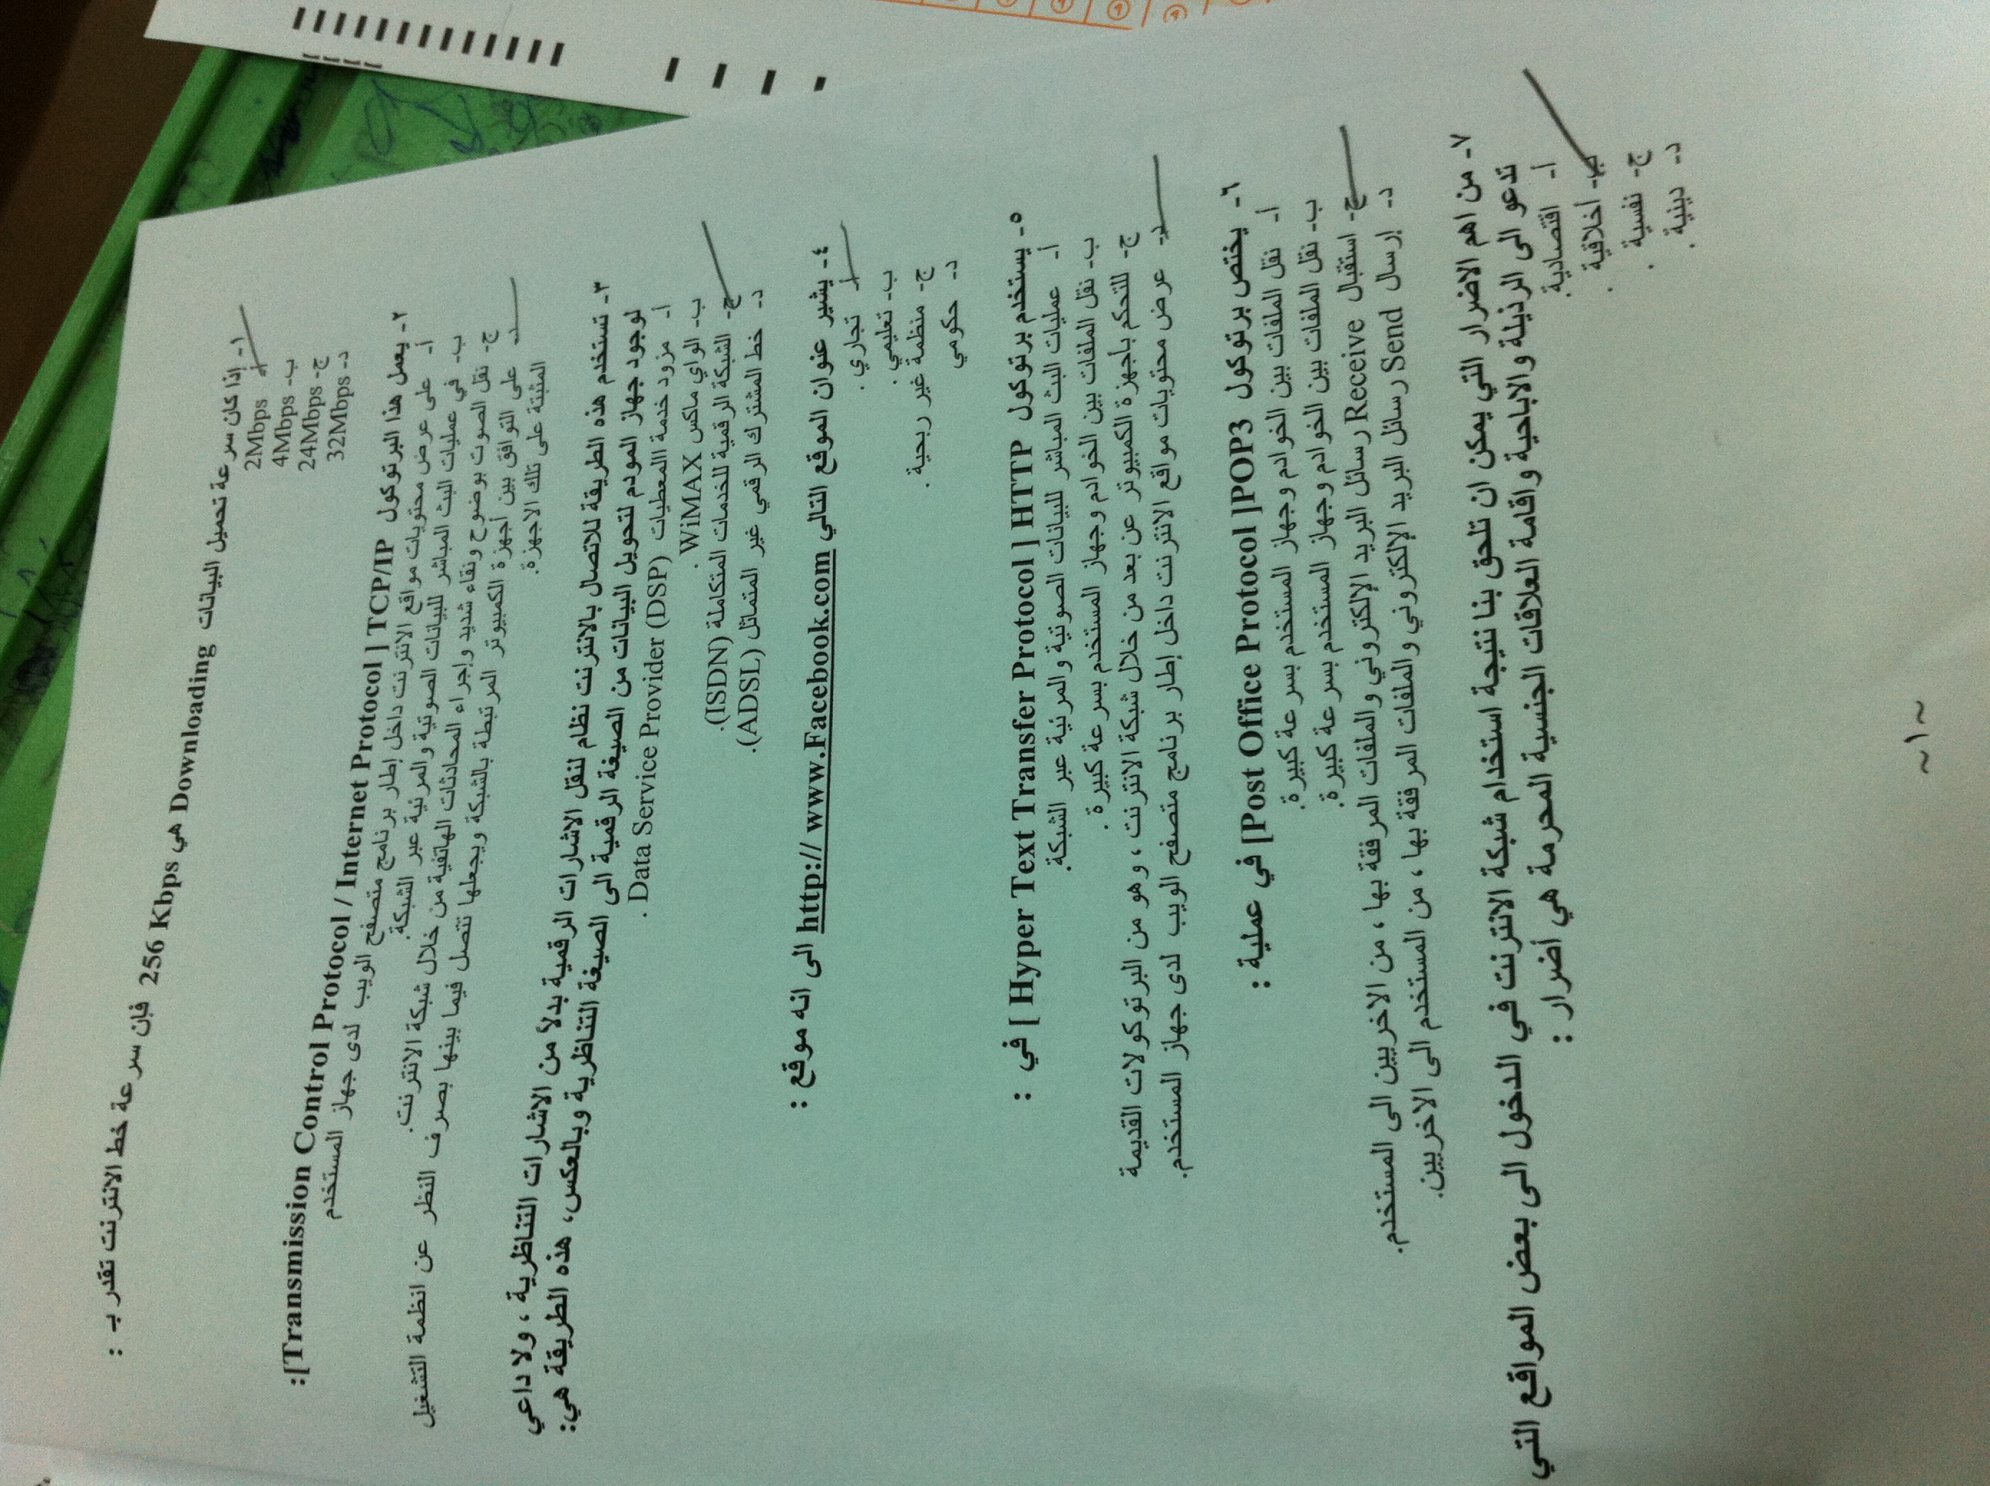 ١- إذا كان سرعة تحميل البيانات Downloading هي 256 Kbps فإن سرعة خط الانترنت تقدر بـ :
أ- 2Mbps
ب- 4Mbps
ج- 24Mbps
د- 32Mbps
٢- يعمل هذا البرتوكول TCP/IP [ Transmission Control Protocol / Internet Protocol]:
أ- على عرض محتويات مواقع الانترنت داخل إطار برنامج متصفح الويب لدى جهاز المستخدم
ب- في عمليات البث المباشر للبيانات الصوتية والمرئية عبر الشبكة.
ج- نقل الصوت بوضوح ونقاء شديد وإجراء المحادثات الهاتفية من خلال شبكة الانترنت.
د- على التوافق بين أجهزة الكمبيوتر المرتبطة بالشبكة ويجعلها تتصل فيما بينها بصرف النظر عن انظمة التشغيل
المثبتة على تلك الاجهزة.
٣- تستخدم هذه الطريقة للاتصال بالانترنت نظام لنقل الاشارات الرقمية بدلاً من الاشارات التناظرية ، ولا داعي
لوجود جهاز المودم لتحويل البيانات من الصيغة الرقمية الى الصيغة التناظرية وبالعكس، هذه الطريقة هي:
أ- مزود خدمة االمعطيات Data Service Provider (DSP) .
ب- الواي ماكس WiMAX .
ج- الشبكة الرقمية للخدمات المتكاملة (ISDN).
د- خط المشترك الرقمي غير المتماثل (ADSL).
٤- يشير عنوان الموقع التالي http:// www.Facebook.com الى انه موقع :
أ- تجاري .
ب- تعليمي .
ج- منظمة غير ربحية .
د- حكومي
٥- يستخدم برتوكول HTTP [ Hyper Text Transfer Protocol ] في :
أ- عمليات البث المباشر للبيانات الصوتية والمرئية عبر الشبكة.
ب- نقل الملفات بين الخوادم وجهاز المستخدم بسرعة كبيرة .
ج- للتحكم بأجهزة الكمبيوتر عن بعد من خلال شبكة الانترنت ، وهو من البرتوكولات القديمة
د- عرض محتويات مواقع الانترنت داخل إطار برنامج متصفح الويب لدى جهاز المستخدم.
٦- يختص برتوكول POP3[ Post Office Protocol] في عملية :
أ- نقل الملفات بين الخوادم وجهاز المستخدم بسرعة كبيرة.
ب- نقل الملفات بين الخوادم وجهاز المستخدم بسرعة كبيرة.
ج- استقبال Receive رسائل البريد الإلكتروني والملفات المرفقة بها ، من الاخريين الى المستخدم.
د- إرسال Send رسائل البريد الإلكتروني والملفات المرفقة بها ، من المستخدم الى الاخريين.
٧- من اهم الاضرار التي يمكن ان تلحق بنا نتيجة استخدام شبكة الانترنت في الدخول الى بعض المواقع التي
تدعو الى الرذيلة والاباحية واقامة العلاقات الجنسية المحرمة هي أضرار :
أ- اقتصادية.
ب- أخلاقية .
ج- نفسية .
د- دينية .
~ ١ ~